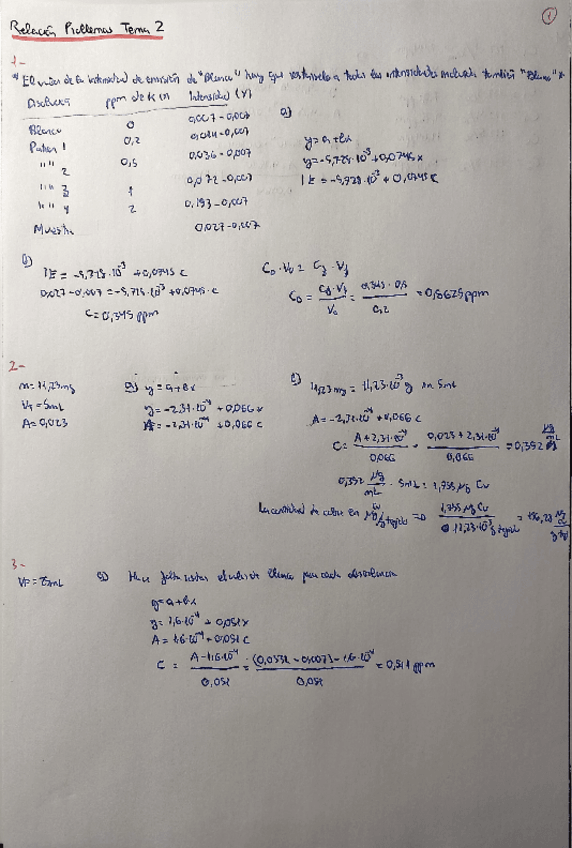 Relación Problemas Tema 2
1
1-
* El valor de la intensidad de emisión de "Blanco" hay que restárselo a todas las intensidades incluida también "Blanco" *
Disolución ppm de K (x) Intensidad (Y)
Blanco 0 0,007-0,007
Patrón 1 0,2 0,021-0,007
"" 2 0,5 0,036-0,007
"" 3 1 0,072-0,007
"" 4 2 0,193-0,007
Muestra 0,027-0,007
a)
y = a+bx
y = -5,728·10⁻³ + 0,0745x
IE = -5,728·10⁻³ + 0,0745 C
b)
IE = -5,728·10⁻³ + 0,0745 C
0,027-0,007 = -5,728·10⁻³ + 0,0745·C
C = 0,345 ppm
C₀·V₀ = Cf·Vf
C₀ = Cf·Vf / V₀ = 0,345·0,5 / 0,2 = 0,8625 ppm
2-
m = 11,23mg
VT = 5mL
A = 0,023
a) y = a+bx
y = -2,31·10⁻⁴ + 0,066x
A = -2,31·10⁻⁴ + 0,066 C
11,23 mg = 11,23·10⁻³ g en 5mL
A = -2,31·10⁻⁴ + 0,066 C
C = A+2,31·10⁻⁴ / 0,066 = 0,023+2,31·10⁻⁴ / 0,066 = 0,352 µg/mL
0,352 µg/mL · 5mL = 1,755 µg Cu
La cantidad de cobre en µg Cu/g tejido => 1,755 µg Cu / 11,23·10⁻³ g tejido = 156,28 µg Cu/g tej
3-
VF = 25mL
a) Hace falta restar el valor de blanco para cada absorbancia
y = a+bx
y = 1,6·10⁻⁴ + 0,051x
A = 1,6·10⁻⁴ + 0,051 C
C = A-1,6·10⁻⁴ / 0,051 = (0,0334-0,0073)-1,6·10⁻⁴ / 0,051 = 0,511 ppm